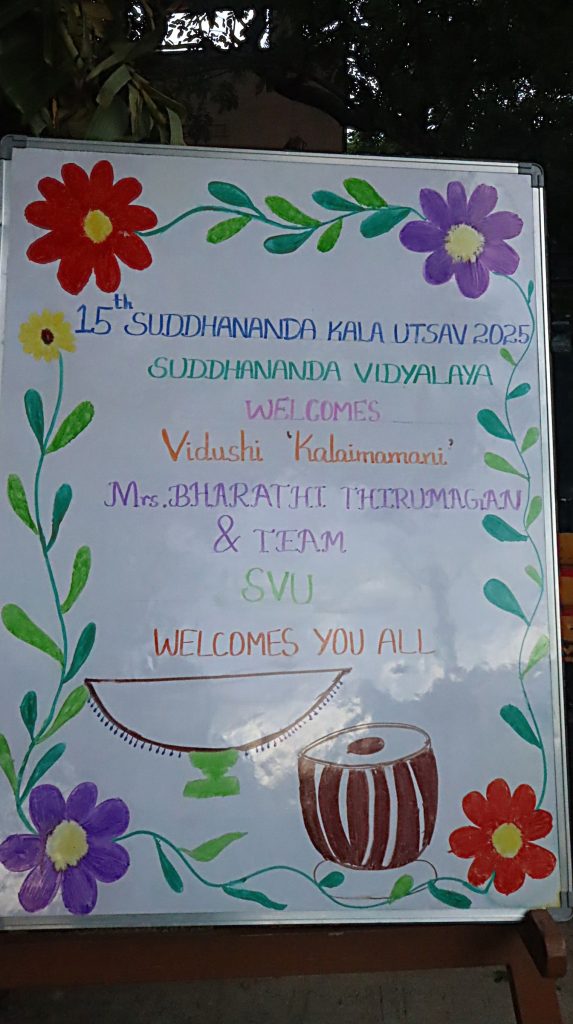 15th SUDDHANANDA KALA UTSAV 2025
SUDDHANANDA VIDYALAYA
WELCOMES
Vidushi 'Kalaimamani'
Mrs. BHARATHI THIRUMAGAN
& TEAM
SVU
WELCOMES YOU ALL